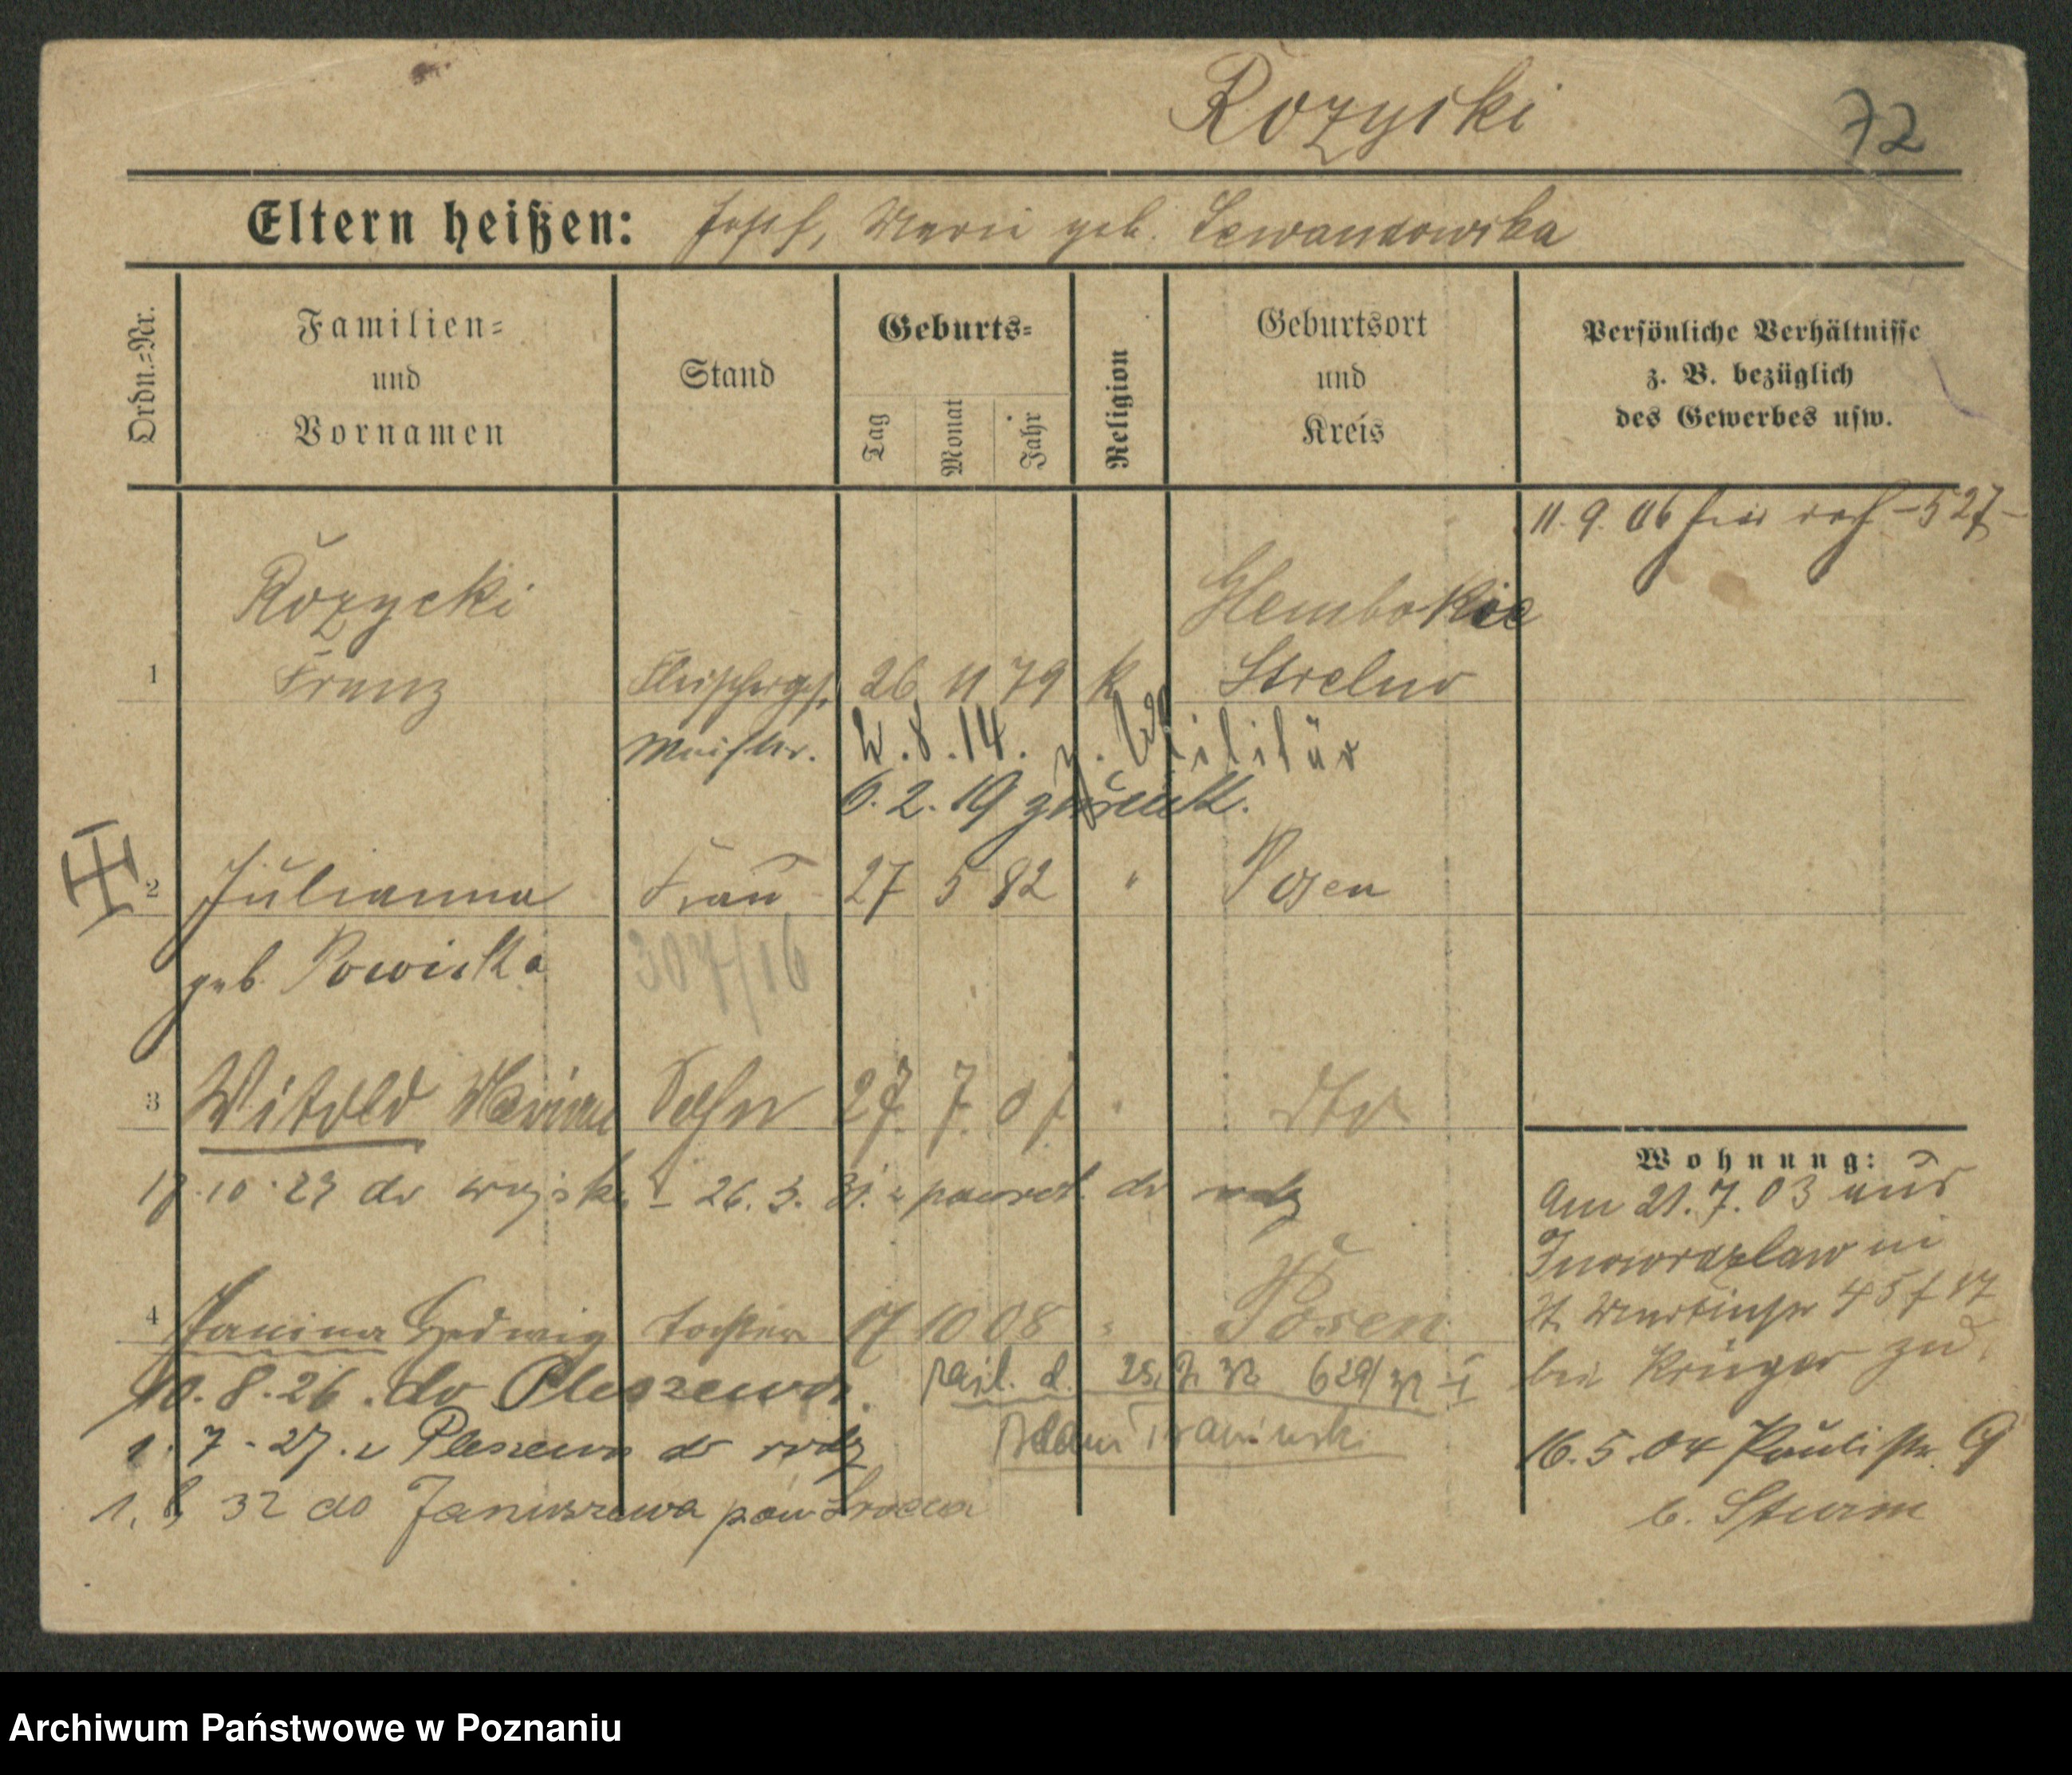 Rozycki 72
Eltern heißen: Josef, Marie geb. Lewandowska
Ordn.=Nr.
Familien=
und
Vornamen
Stand
Geburts=
Tag
Monat
Jahr
Religion
Geburtsort
und
Kreis
Persönliche Verhältnisse
z. B. bezüglich
des Gewerbes usw.
11. 9. 06
Rozycki
Glembokie
1 Franz Fleischerges. 26 11 79 k Strelno
Meister. 2. 8. 14. z. Militär
6. 2. 19 zurück.
2 Julianna Frau 27 5 82 " Posen
geb.
307/16
3 Witold Marian Sohn 27 7 07 " dto
10. 29 do wojska 26. 3. 31. z powrot. do rodz
4 Janina Hedwig Tochter 17 10 08 " Posen
10. 8. 26. do Pleszewa.
629/32 I
1. 7. 27. z Pleszewa do rodz
Adam
1. 32 do Januszewa pow Sroda
Wohnung:
Am 21. 7. 03 aus
Inowrazlaw in
St. Martinstr 45
bei Krüger zu.
16. 5. 04 Paulistr. 9
b. Sturm
Archiwum Państwowe w Poznaniu